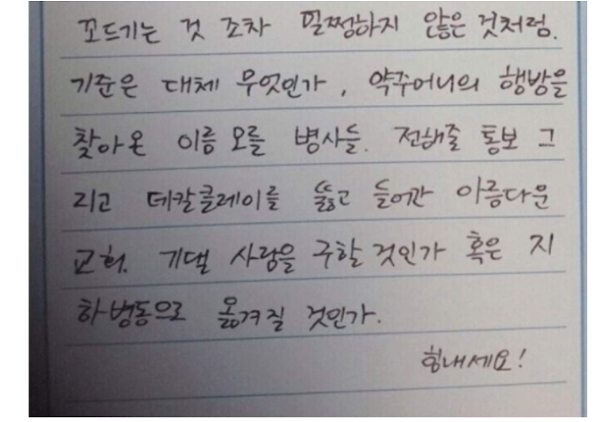 꼬드기는 것 조차 멀쩡하지 않은 것처럼.
기준은 대체 무엇인가, 약주어니의 행방을
찾아온 이름 모를 병사들. 전해줄 통보 그
리고 데칼클레이를 뚫고 들어간 아름다운
교회. 기댈 사람을 구할 것인가 혹은 지
하병동으로 옮겨질 것인가.
힘내세요!